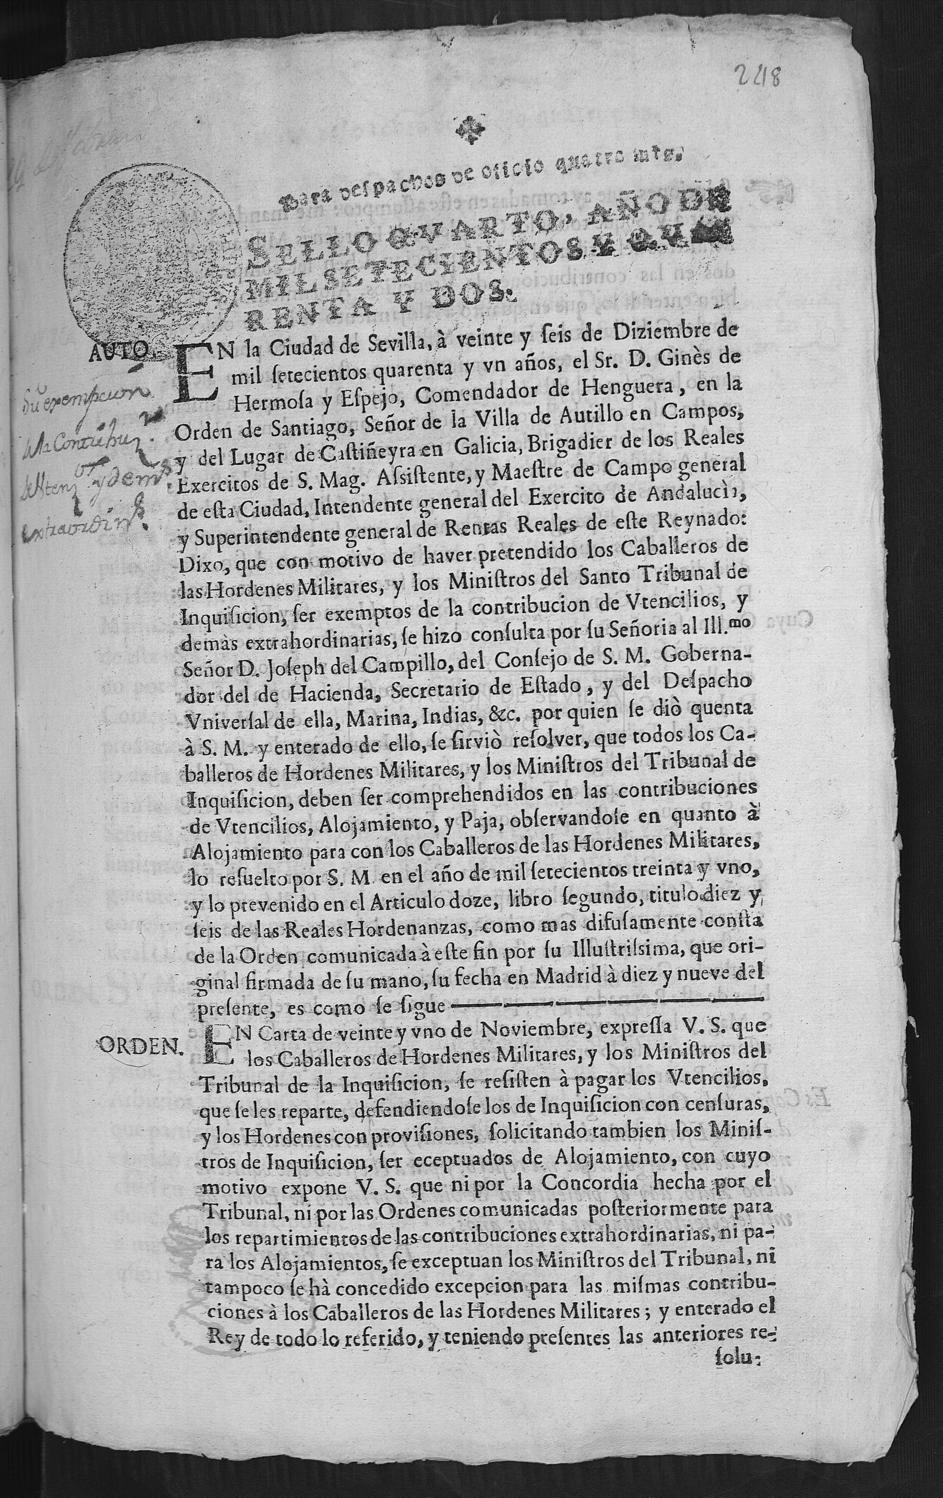 248
Para despachos de oficio quatro mrs.
SELLO QVARTO, AÑO DE
MIL SETECIENTOS Y QVA
RENTA Y DOS.
AUTO.
EN la Ciudad de Sevilla, à veinte y ſeis de Diziembre de
mil ſetecientos quarenta y vn años, el Sr. D. Ginès de
Hermoſa y Eſpejo, Comendador de Henguera, en la
Orden de Santiago, Señor de la Villa de Autillo en Campos,
y del Lugar de Caſtiñeyra en Galicia, Brigadier de los Reales
Exercitos de S. Mag. Aſsiſtente, y Maeſtre de Campo general
de eſta Ciudad, Intendente general del Exercito de Andalucìa,
y Superintendente general de Rentas Reales de eſte Reynado:
Dixo, que con motivo de haver pretendido los Caballeros de
las Hordenes Militares, y los Miniſtros del Santo Tribunal de
Inquiſicion, ſer exemptos de la contribucion de Vtencilios, y
demàs extrahordinarias, ſe hizo conſulta por ſu Señoria al Ill.mo
Señor D. Joſeph del Campillo, del Conſejo de S. M. Goberna-
dor del de Hacienda, Secretario de Eſtado, y del Deſpacho
Vniverſal de ella, Marina, Indias, &c. por quien ſe diò quenta
à S. M. y enterado de ello, ſe ſirviò reſolver, que todos los Ca-
balleros de Hordenes Militares, y los Miniſtros del Tribunal de
Inquiſicion, deben ſer comprehendidos en las contribuciones
de Vtencilios, Alojamiento, y Paja, obſervandoſe en quanto à
Alojamiento para con los Caballeros de las Hordenes Militares,
lo reſuelto por S. M. en el año de mil ſetecientos treinta y vno,
y lo prevenido en el Articulo doze, libro ſegundo, titulo diez y
ſeis de las Reales Hordenanzas, como mas difuſamente conſta
de la Orden comunicada à eſte fin por ſu Illuſtriſsima, que ori-
ginal firmada de ſu mano, ſu fecha en Madrid à diez y nueve del
preſente, es como ſe ſigue
ORDEN.
EN Carta de veinte y vno de Noviembre, expreſſa V. S. que
los Caballeros de Hordenes Militares, y los Miniſtros del
Tribunal de la Inquiſicion, ſe reſiſten à pagar los Vtencilios,
que ſe les reparte, defendiendoſe los de Inquiſicion con cenſuras,
y los Hordenes con proviſiones, ſolicitando tambien los Miniſ-
tros de Inquiſicion, ſer eceptuados de Alojamiento, con cuyo
motivo expone V. S. que ni por la Concordia hecha por el
Tribunal, ni por las Ordenes comunicadas poſteriormente para
los repartimientos de las contribuciones extrahordinarias, ni pa-
ra los Alojamientos, ſe exceptuan los Miniſtros del Tribunal, ni
tampoco ſe hà concedido excepcion para las miſmas contribu-
ciones à los Caballeros de las Hordenes Militares; y enterado el
Rey de todo lo referido, y teniendo preſentes las anteriores re-
ſolu-